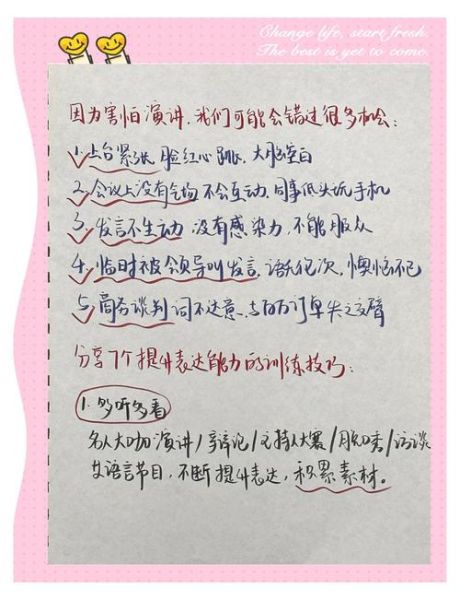 Change life, start fresh.
The best is yet to come.
因为害怕演讲,我们可能会错过很多机会:
1.上台紧张 脸红心跳、大脑空白
2.会议上没有气场 不会互动,同事低头玩手机
3.发言不生动 没有感染力,不能服众
4.临时被领导叫发言,语无伦次,懊恼不已
5.商务谈判 词不达意,与百万订单失之交臂
分享7个提升表达能力的训练技巧:
1.多听多看
名人大咖演讲/辩论/主持人大赛/脱口秀/访谈
女语言节目,不断提升表达,积累素材。